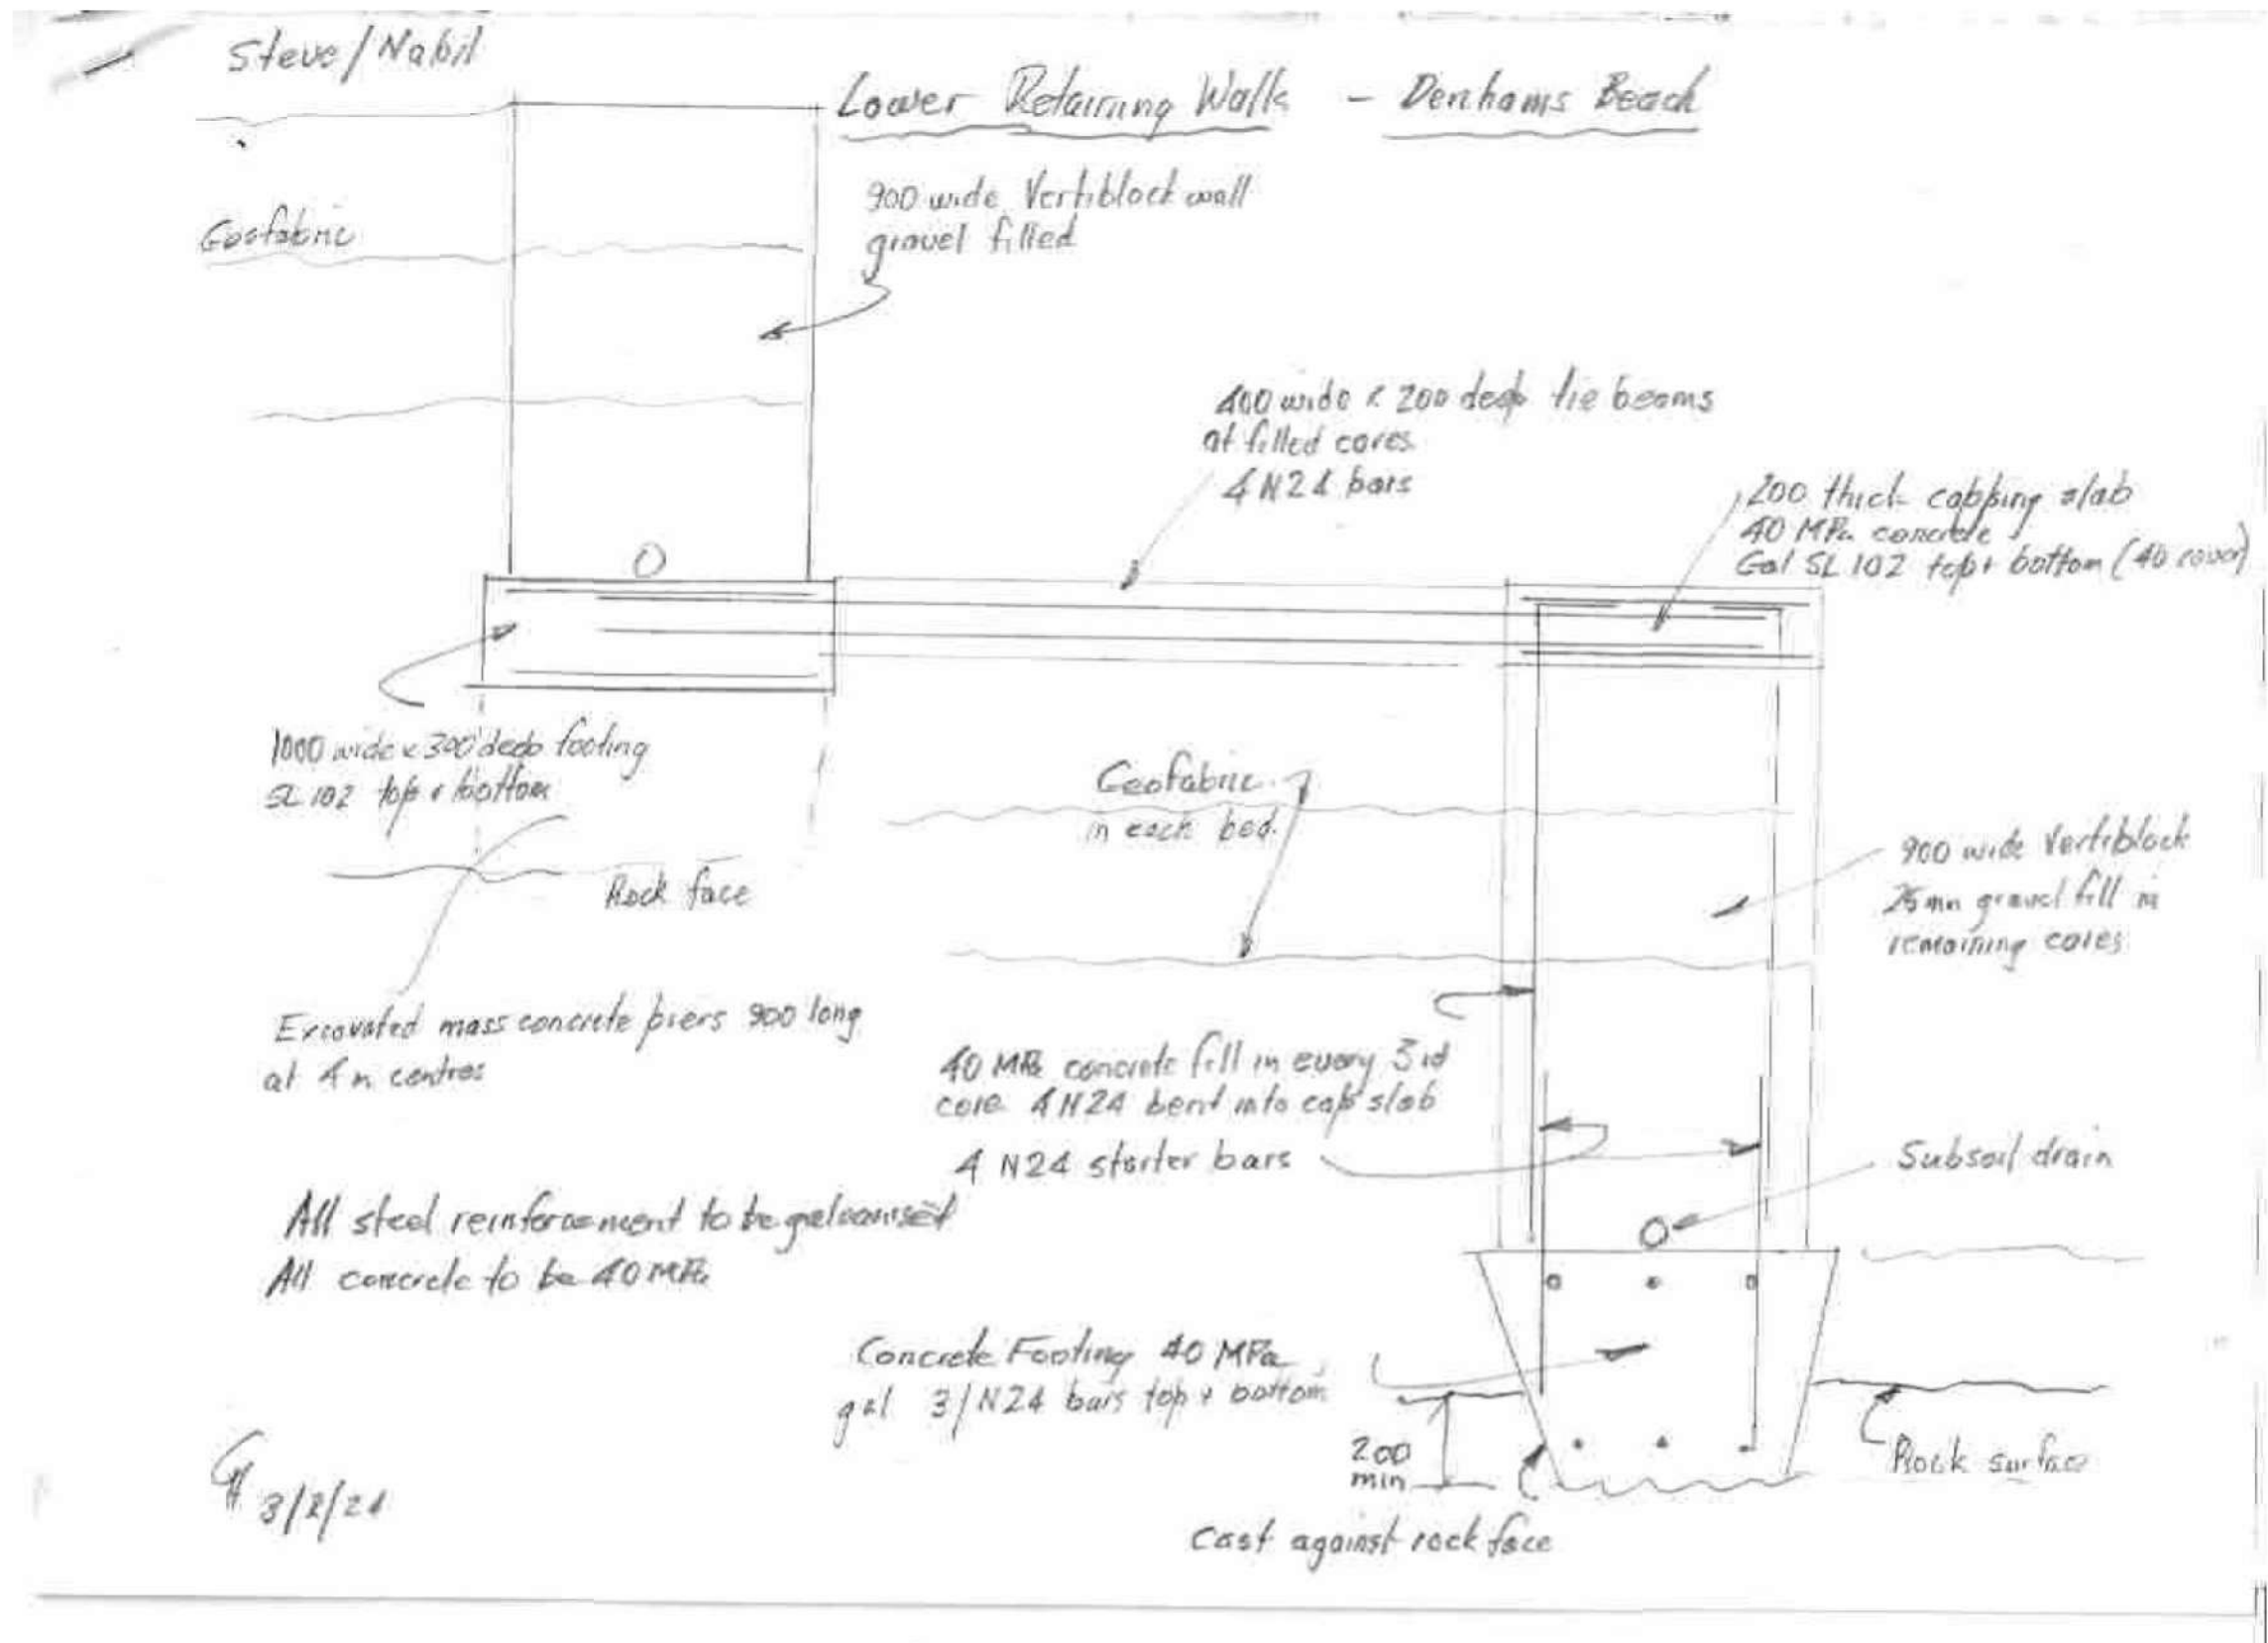 Steve/Nabil
Lower Retaining Walls - Denhams Beach
900 wide Vertiblock wall
gravel filled
Geofabric
400 wide x 200 deep tie beams
at filled cores
4 N24 bars
200 thick capping slab
40 MPa concrete
Gal SL 102 top + bottom (40 cover)
1000 wide x 300 deep footing
SL 102 top + bottom
Geofabric
in each bed.
Rock face
900 wide Vertiblock
25mm gravel fill in
remaining cores
Excavated mass concrete piers 900 long
at 4m centres
40 MPa concrete fill in every 3rd
core 4 N24 bent into cap slab
4 N24 starter bars
Subsoil drain
All steel reinforcement to be galvanised
All concrete to be 40 MPa
Concrete Footing 40 MPa
gal 3/N24 bars top + bottom
200
min
Rock surface
Cast against rock face
3/2/21